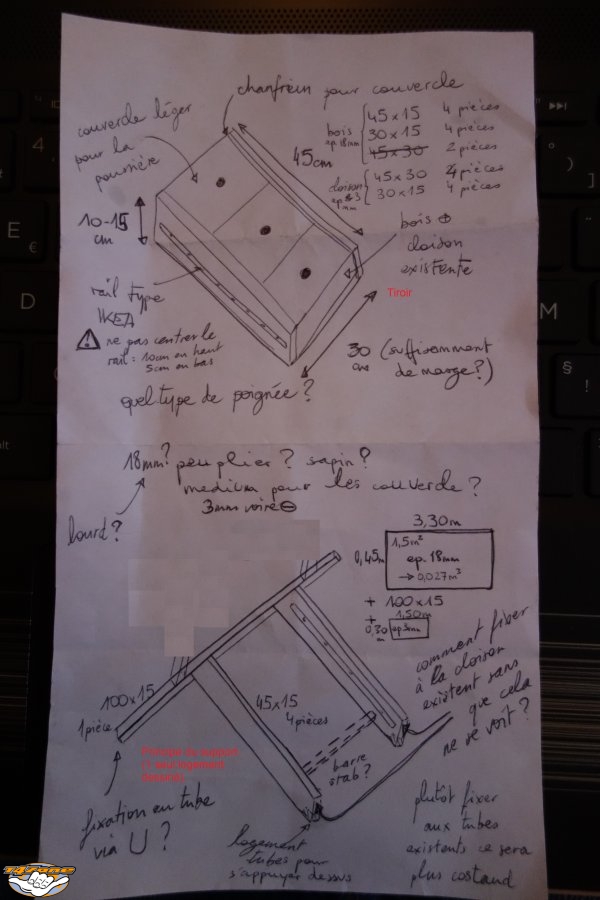 chanfrein pour couvercle
couvercle léger
pour la
poussière
45cm
bois
ep. 18mm
45x15 4 pièces
30x15 4 pièces
45x30 2 pièces
cloison
ep 3
mm
45x30 4 pièces
30x15 4 pièces
10-15
cm
bois ⊕
cloison
existente
Tiroir
rail type
IKEA
⚠ ne pas centrer le
rail : 10cm en haut
5cm en bas
30
cm
(suffisamment
de marge?)
quel type de poignée?
18mm? peuplier? sapin?
medium pour les couvercle?
3mm voire ⊖
lourd?
3,30m
0,45m
1,5m²
ep. 18mm
→ 0,027m³
+ 100x15
+ 1,50m
0,30
m
ep 3mm
comment fixer
à la cloison
existent sans
que cela
ne se voit?
100x15
1 pièce
45x15
4 pièces
Principe de support
(1 seul logement
dessiné)
barre
stab?
fixation au tube
via U?
logement
tubes pour
s'appuyer dessus
plutôt fixer
aux tubes
existents ce sera
plus costaud